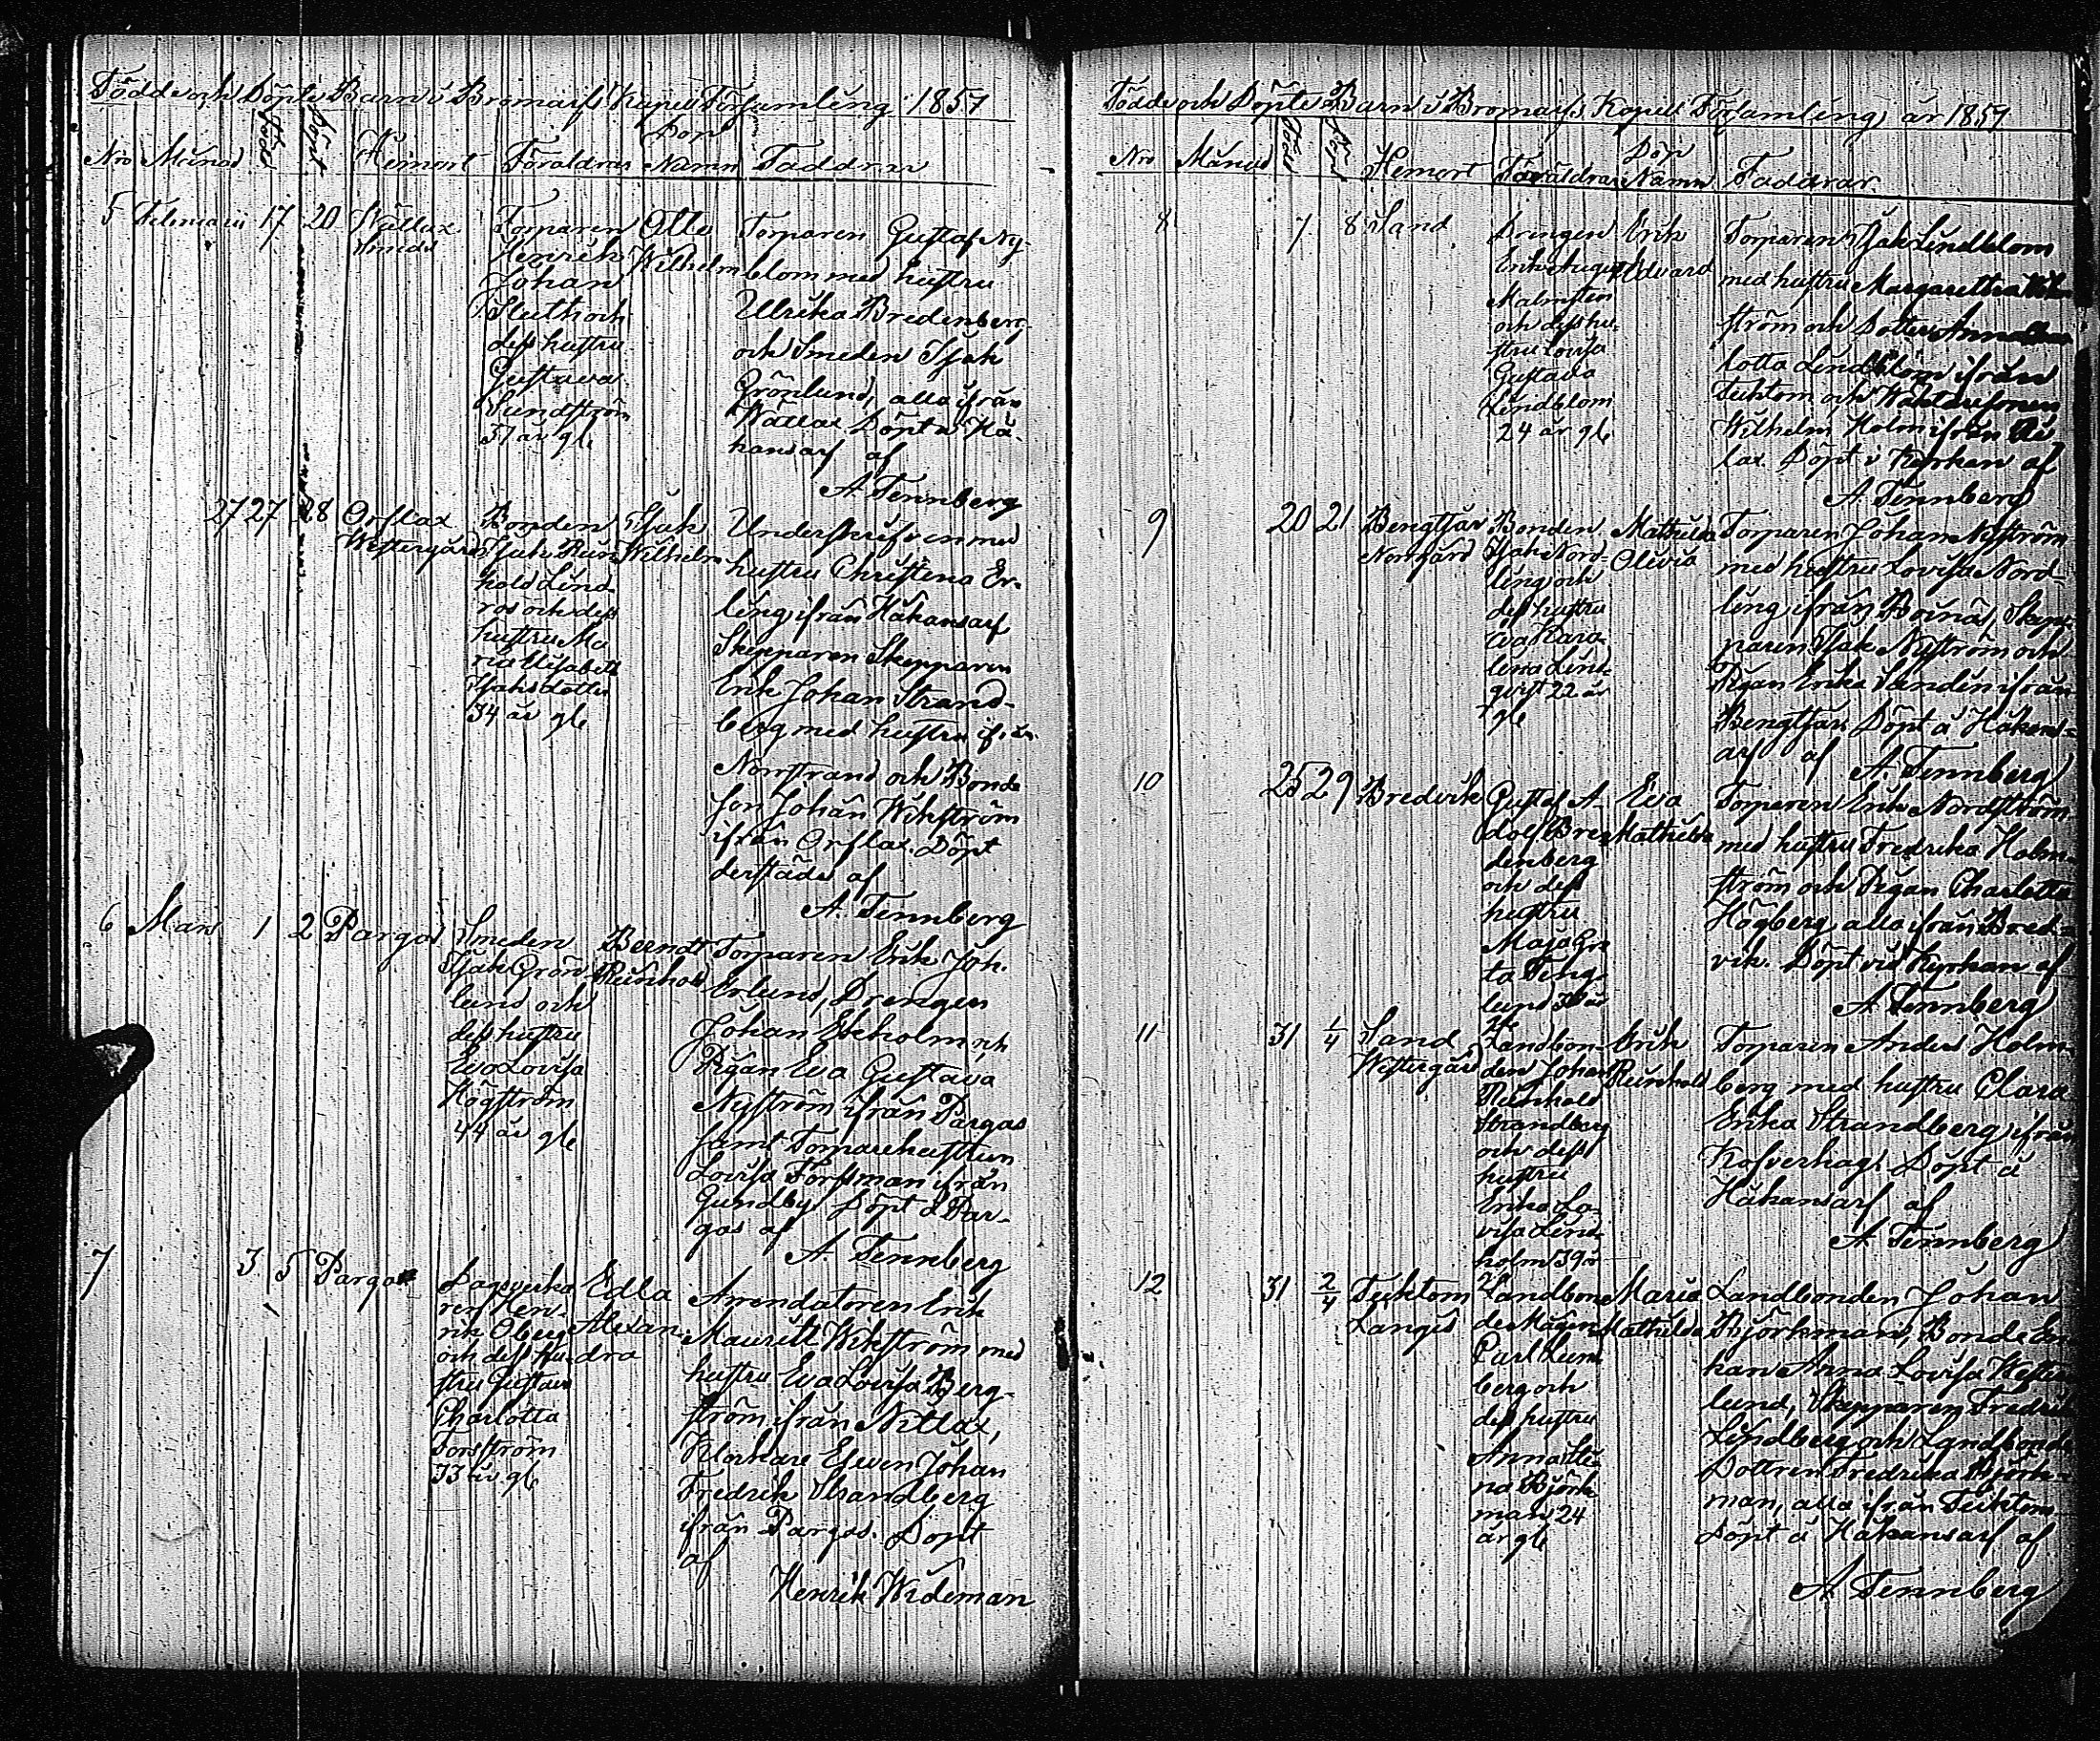 Födde och Döpte Barn i Bromarfs Kapell Församling 1857
Nro Månad Födde Döpt Hemort Föräldrar Dop Namn Faddrar
5 Februarii 17 20 Wättlax Smeds
Torparen
Henrik
Johan
Sluth och
dess hustru
Gustava
Sundström
37 år gl
Otto
Wilhelm
Torparen Gustaf Ny-
blom med hustru
Ullrika Bredenberg
och Smeden Isak
Grönlund, alla ifrån
Wättlax Döpt å Hå-
kansarf af
A Tennberg
27 27 28 Orslax
Westergård
Bonden
Isak Rein
hold Lind
ros och dess
hustru Ma
ria Elisabeth
Isaksdotter
34 år gl
Isak
Wilhelm
med
hustru Christina Er-
ling ifrån Håkansarf
Skepparen Skepparen
Erik Johan Strand-
berg med hustru ifrån
Norrstrand och Bonde
Son Johan Wikström
ifrån Orslax. Döpt
derstädes af
A. Tennberg
6 Mars 1 2 Pargas
Smeden
Isak Grön
lund och
dess hustru
Eva Lovisa
Högström
44 år gl
Berndt
Reinhold
Torparen Erik Joh.
Erlund, Drengen
Johan Ekholm och
Pigan Eva Gustava
Nyström ifrån Pargas
samt Torparehustrun
Lovisa Forssman ifrån
Gundby. Döpt å Par-
gas af
A. Tennberg
7 3 5 Pargas
Dagsverka
ren Hen-
rik Öberg
och dess hu-
stru Gustava
Charlotta
Forsström
33 år gl
Edla
Alexan
dra
Arrendatoren Erik
Mauritz Wikström med
hustru Eva Lovisa Berg-
ström ifrån Nitlax,
Klockare Eleven Johan
Fredrik Strandberg
ifrån Pargas. Döpt
af
Henrik Wideman
Födde och Döpte Barn i Bromarfs Kapell Församling år 1857
Nro Månad Född Döpt Hemort Föräldrar Dop Namn Faddrar
8 7 8 Sand
Drengen
Erik August
Malmsten
och dess hu-
stru Lovisa
Gustava
Lindblom
24 år gl
Erik
Edvard
Torparen Isak Lindblom
med hustru Margaretha
ström och Dottern Anna
lotta Lindblom ifrån
Teiktom och
Wilhelm Holm ifrån
lax. Döpt i Kyrkan af
A. Tennberg
9 20 21 Bengtsår
Norrgård
Bonden
Isak Nord-
ling och
dess hustru
Eva Karo
lina Lind-
qvist 22 år
gl
Mathilda
Olivia
Torparen Johan Nyström
med hustru Lovisa Nord-
ling ifrån Böinäs, Skep-
paren Isak Nyström och
Pigan Erika Sandén ifrån
Bengtsår. Döpt å Håkans-
arf af A. Tennberg
10 25 29 Bredvik
Gustaf A-
dolf Bre-
denberg
och dess
hustru
Maja Gre
ta Teng
lund
Eva
Mathilda
Torparen Erik Nordström
med hustru Fredrika Holm-
ström och Pigan Charlotta
Högberg, alla ifrån Bred-
vik. Döpt vid Kyrkan af
A Tennberg
11 31 1/4 Sand
Westergård
Landbon-
den Johan
Reinhold
Strandberg
och dess
hustru
Erika Lo-
visa Lind-
holm 39 år
Erik
Reinhold
Torparen Anders Holm-
berg med hustru Clara
Erika Strandberg ifrån
Kofverhag. Döpt å
Håkansarf af
A Tennberg
12 31 2/4 Teiktom
Langis
Landbon
de Männ
Carl Lund
berg och
dess hustru
Anna Sti-
na Björk
man 24
år gl
Maria
Mathilda
Landbonden Johan
Björkman, Bonde En-
kan Anna Lovisa Wester
lund, Skepparen Fredrik
Lindberg och Landbonde
Dottren Fredrika Björk-
man, alla ifrån Teiktom
Döpt å Håkansarf af
A Tennberg